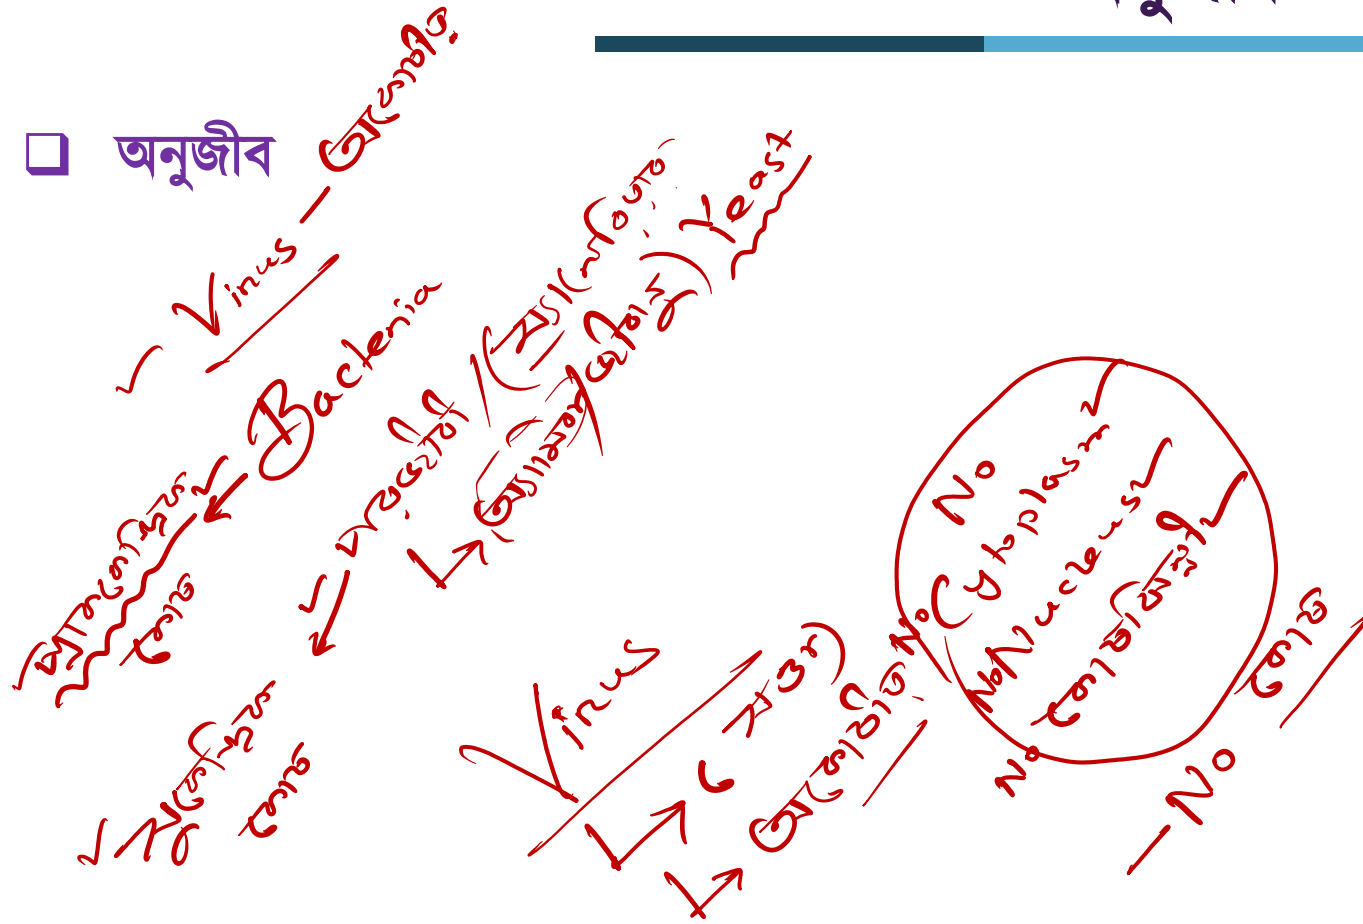 অনুজীব
Virus – অকোষীয়
Bacteria
প্রাককেন্দ্রিক
কোষ
পরজীবী / (ম্যালেরিয়ার
জীবাণু) Yeast
অ্যামিবা
সুকেন্দ্রিক
কোষ
Virus
অকোষীয়
No Cytoplasm
No Nucleus
No কোষঝিল্লী
– No কোষ